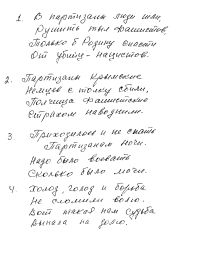 1. В партизаны люди шли,
Рушить тыл фашистов,
Только б Родину спасти
От убийц-нацистов.
2. Партизаны Крымские
Немцев с толку сбили,
Полчища фашистские
Страхом наводнили.
3 Приходилося и не спать
Партизанам ночи.
Надо было воевать
Сколько было мочи.
4. Холод, голод и борьба
Не сломили волю.
Вот такая нам судьба
Выпала на долю.